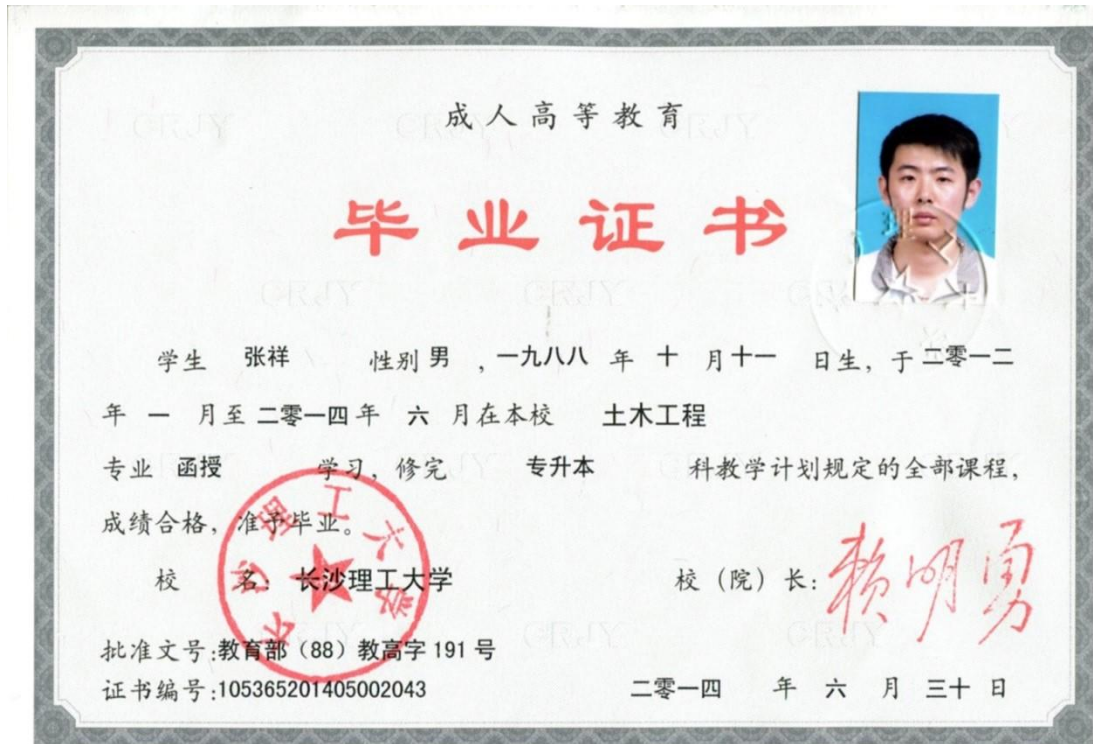 成人高等教育
毕业证书
学生 张祥 性别 男 , 一九八八 年 十 月 十一 日生, 于 二零一二
年 一 月至 二零一四 年 六 月在本校 土木工程
专业 函授 学习, 修完 专升本 科教学计划规定的全部课程,
成绩合格, 准予毕业。
校 名: 长沙理工大学 校 (院) 长: 赖明勇
批准文号:教育部 (88) 教高字 191 号
证书编号:105365201405002043 二零一四 年 六 月 三十 日
长沙理工大学
CRJY CRJY CRJY
CRJY CRJY
CRJY CRJY